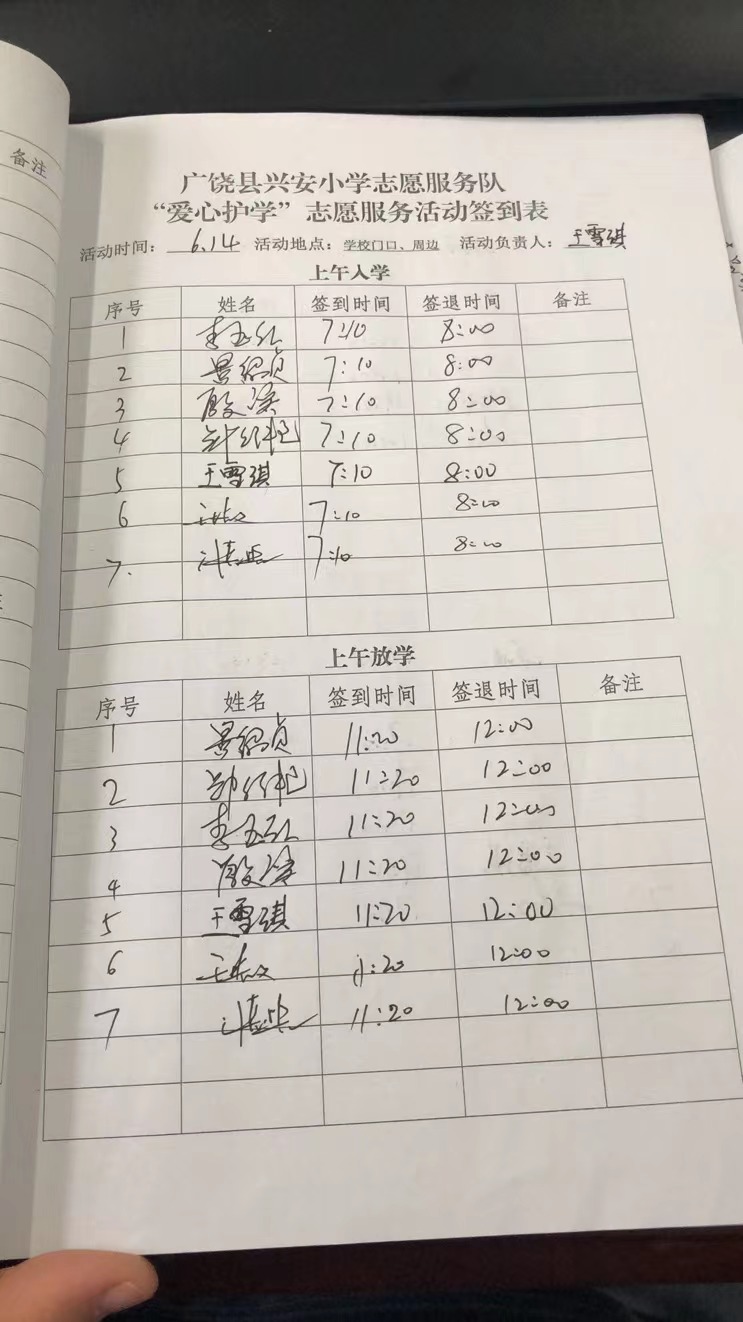 备注
广饶县兴安小学志愿服务队
“爱心护学”志愿服务活动签到表
活动时间： 6.14 活动地点：学校门口、周边 活动负责人：王雪琪
上午入学
序号 姓名 签到时间 签退时间 备注
1 7:10 8:00
2 7:10 8:00
3 7:10 8:00
4 7:10 8:00
5 王雪琪 7:10 8:00
6 7:10 8:00
7. 7:10 8:00
上午放学
序号 姓名 签到时间 签退时间 备注
1 11:20 12:00
2 11:20 12:00
3 11:20 12:00
4 11:20 12:00
5 王雪琪 11:20 12:00
6 11:20 12:00
7 11:20 12:00